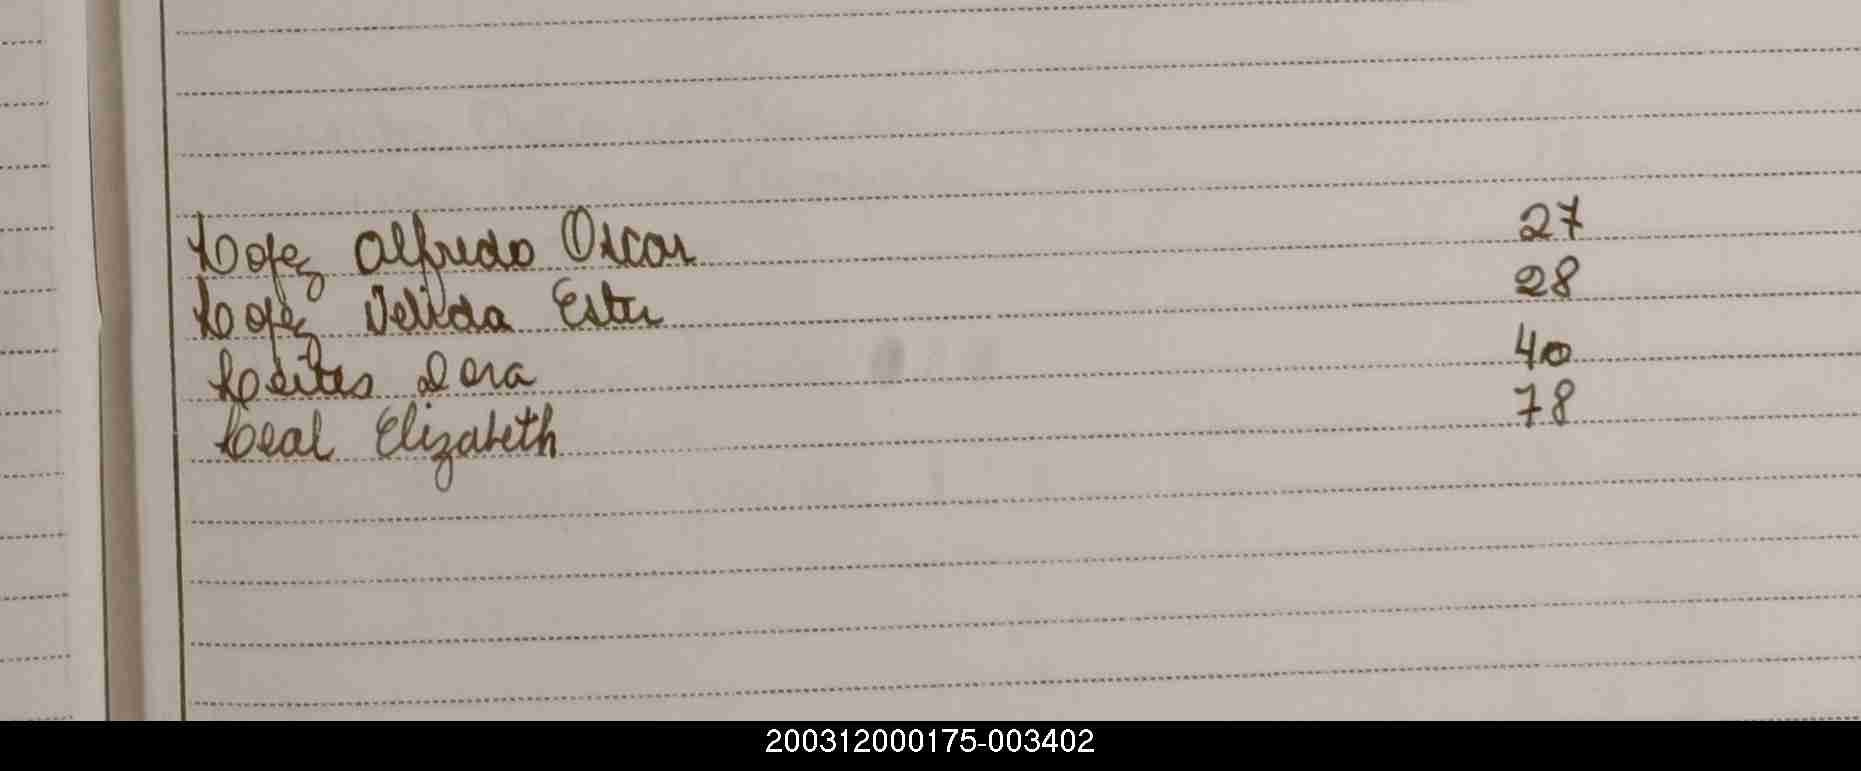 Lopez Alfredo Oscar 27
Lopez Nelida Ester 28
Leites Dora 40
Leal Elizabeth 78
200312000175-003402